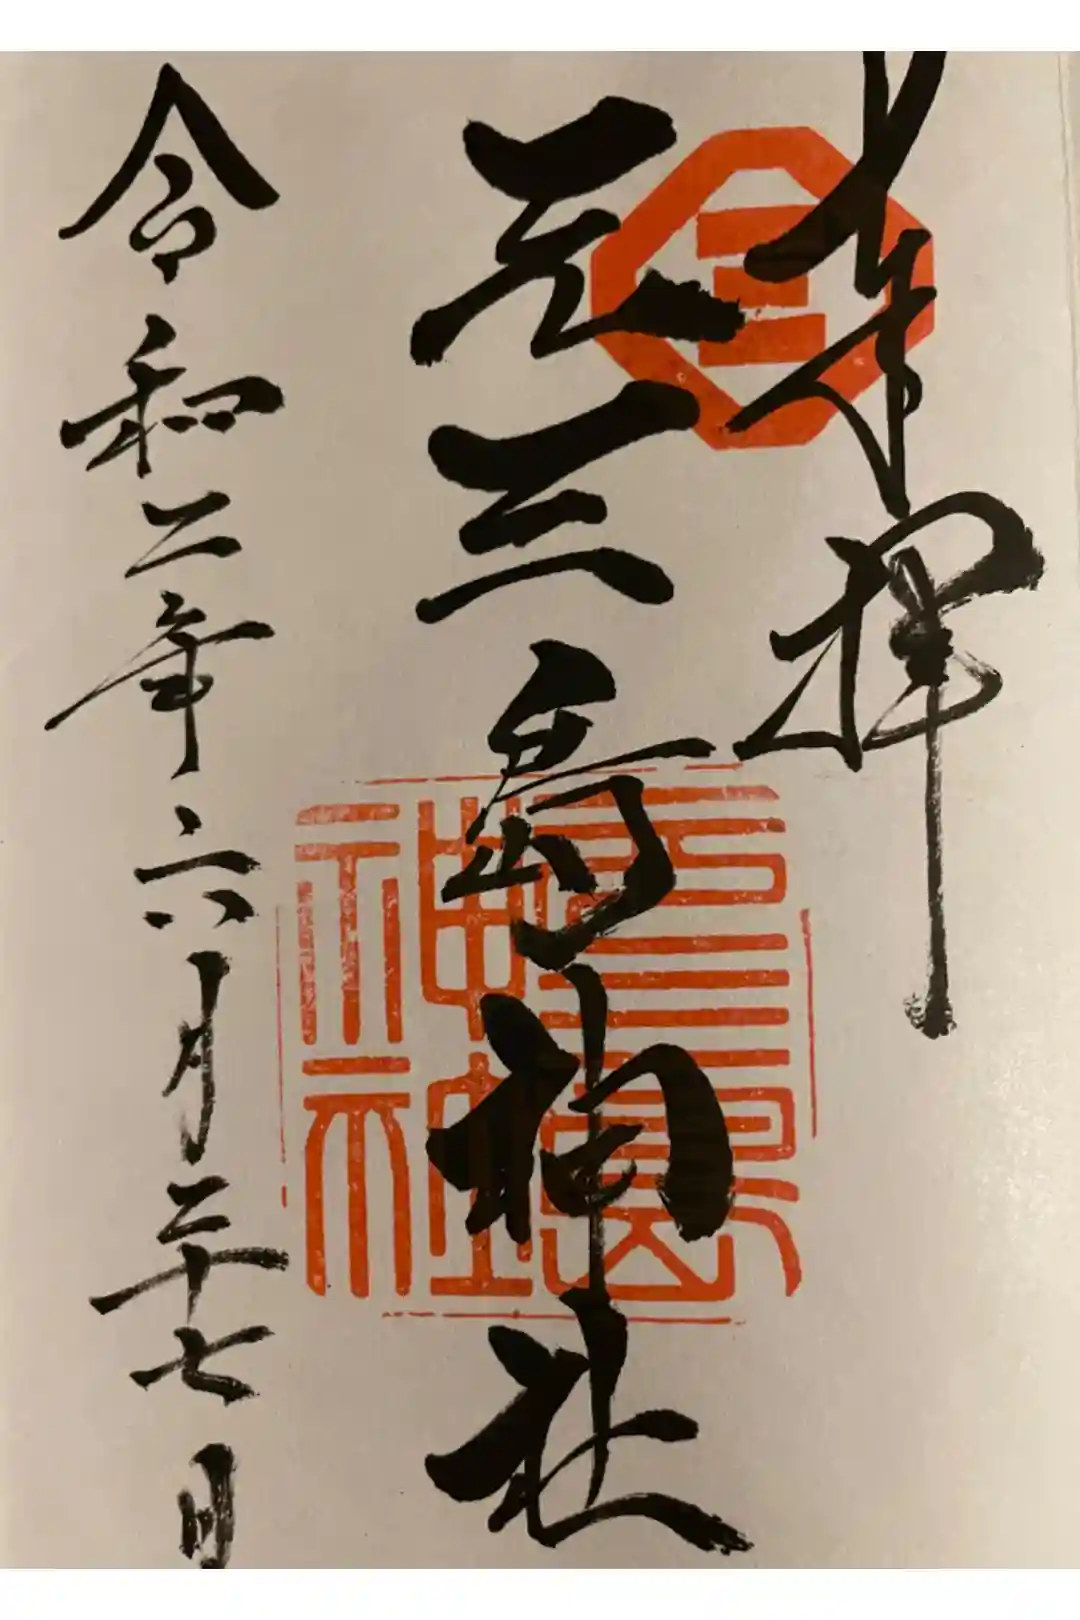 奉拝
三
元三島神社
元三島神社
令和二年六月二十七日